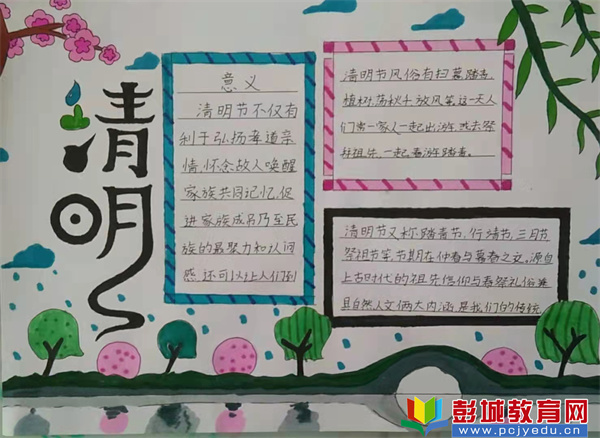 清明
意义
清明节不仅有
利于弘扬孝道亲
情、怀念故人唤醒
家族共同记忆,促
进家族成员乃至民
族的凝聚力和认同
感,还可以让人们到
清明节风俗有扫墓、踏青、
植树、荡秋千、放风筝,这一天人
们带一家人一起出游,
祖先,一起春游踏青。
清明节又称踏青节、行清节、三月节、
祭祖节等,节期在仲春与暮春之交。源自
上古时代的祖先信仰与春祭礼俗,兼
具自然人文两大内涵,是我们的传统
彭城教育网
www.pcjyedu.cn